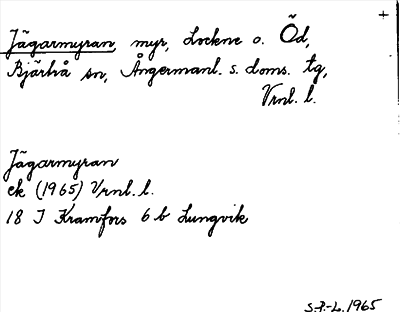 +
Jägarmyran, myr, Lockne o. Öd,
Bjärtrå sn, Ångermanl. s. doms. tg,
Vrnl. l.
Jägarmyran
ek (1965) Vrnl. l.
18 I Kramfors 6 b Lungvik
S.P.-L. 1965